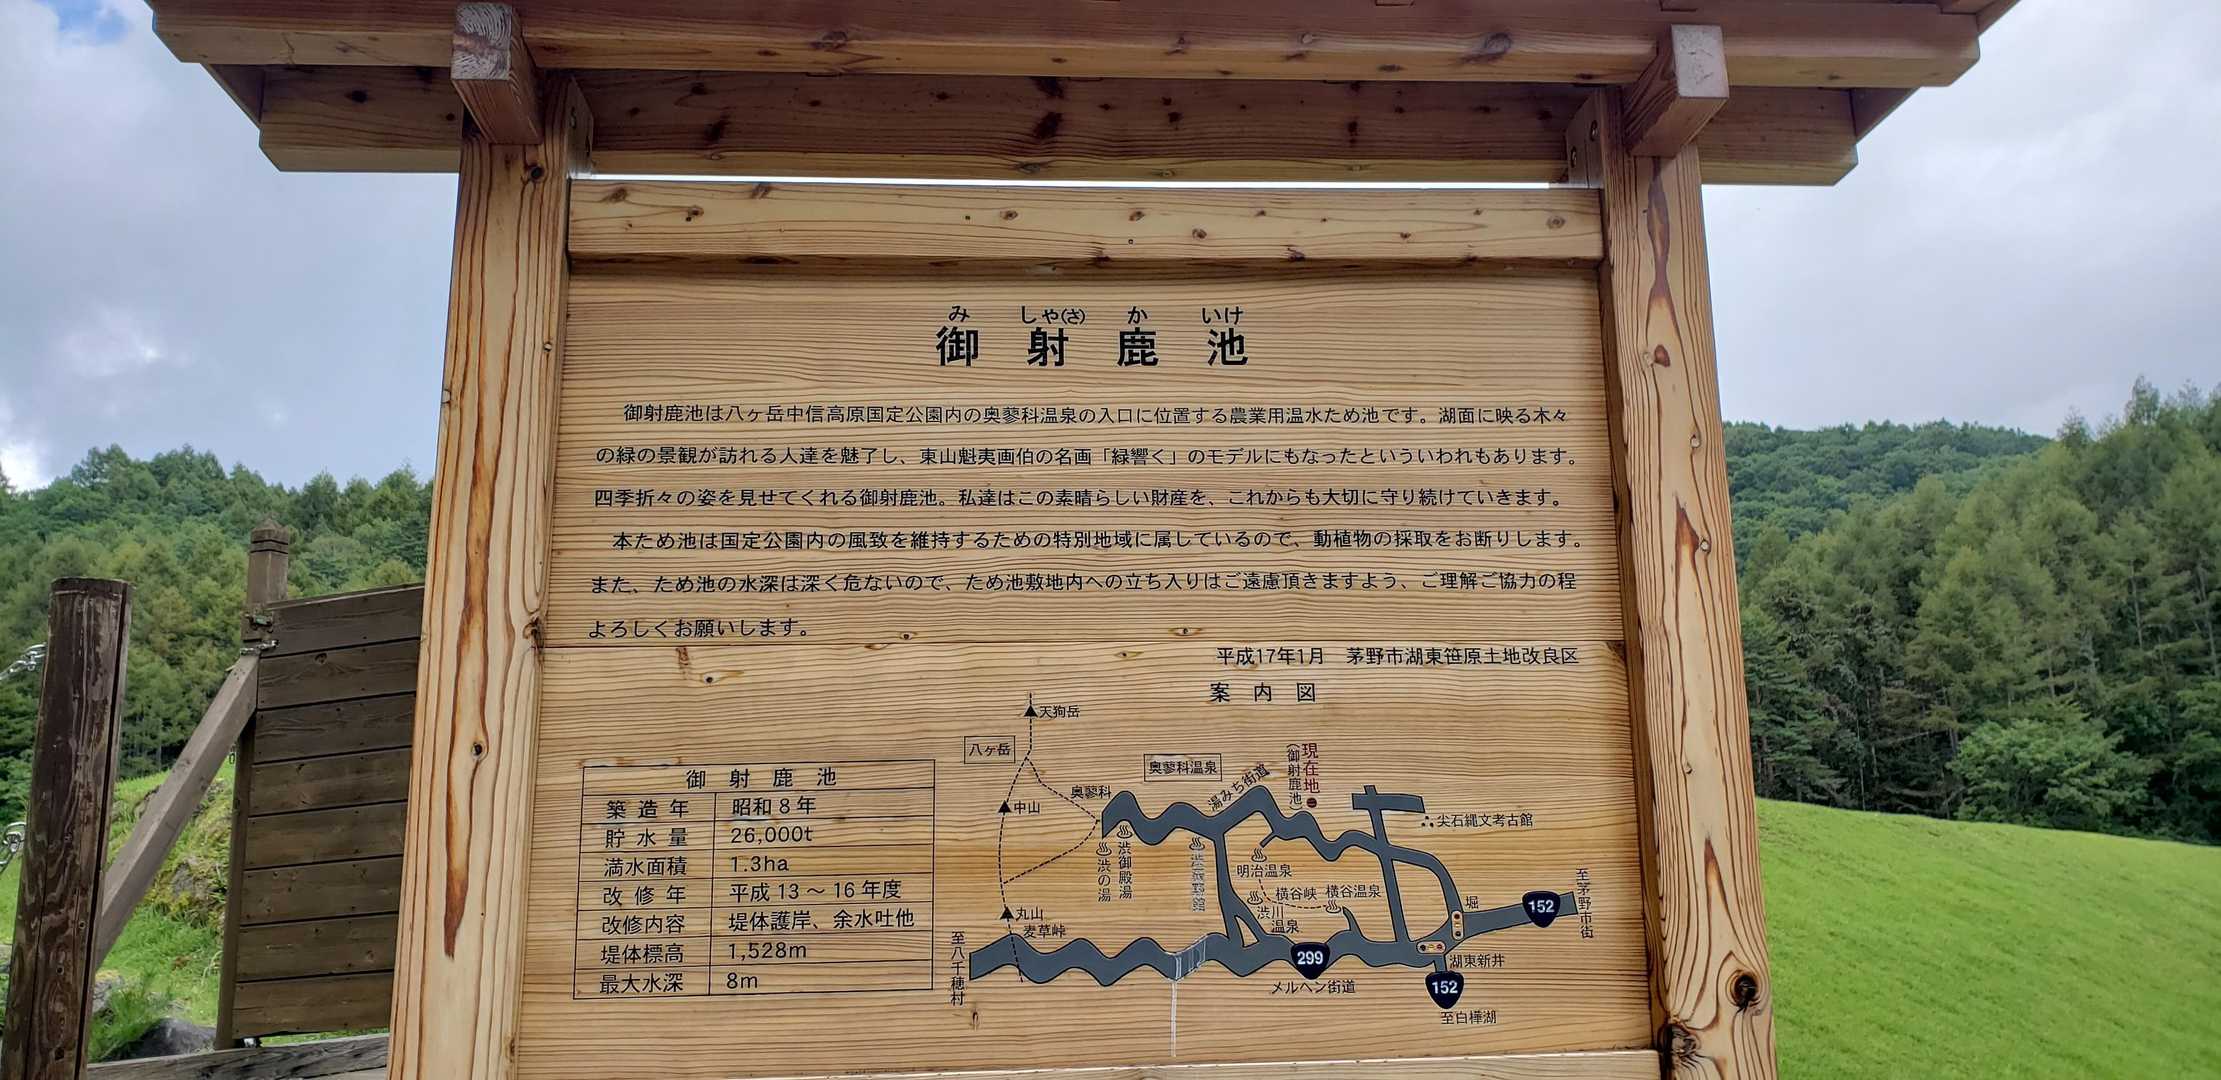 み しゃ(さ) か いけ
御射鹿池
御射鹿池は八ヶ岳中信高原国定公園内の奥蓼科温泉の入口に位置する農業用温水ため池です。湖面に映る木々
の緑の景観が訪れる人達を魅了し、東山魁夷画伯の名画「緑響く」のモデルにもなったといういわれもあります。
四季折々の姿を見せてくれる御射鹿池。私達はこの素晴らしい財産を、これからも大切に守り続けていきます。
本ため池は国定公園内の風致を維持するための特別地域に属しているので、動植物の採取をお断りします。
また、ため池の水深は深く危ないので、ため池敷地内への立ち入りはご遠慮頂きますよう、ご理解ご協力の程
よろしくお願いします。
平成17年1月 茅野市湖東笹原土地改良区
案内図
御射鹿池
築造年 昭和8年
貯水量 26,000t
満水面積 1.3ha
改修年 平成13～16年度
改修内容 堤体護岸、余水吐他
堤体標高 1,528m
最大水深 8m
天狗岳
八ヶ岳
中山
丸山
麦草峠
至八千穂村
奥蓼科
奥蓼科温泉
湯みち街道
現在地
(御射鹿池)
尖石縄文考古館
渋の湯
渋御殿湯
明治温泉
横谷峡
横谷温泉
渋川温泉
堀
152
至茅野市街
299
メルヘン街道
湖東新井
152
至白樺湖